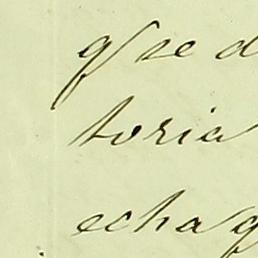 que d
toria
echaq